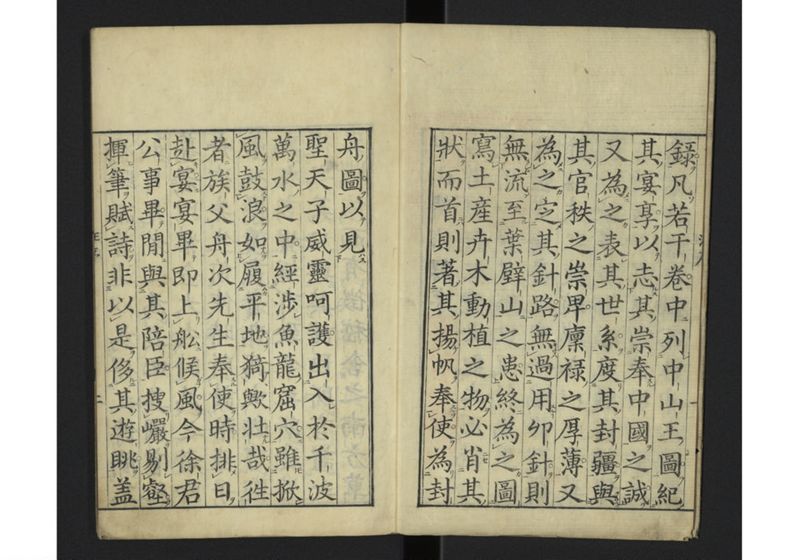 錄凡若干卷中列中山王圖紀
其宴享以志其崇奉中國之誠
又為之表其世系度其封疆與
其官秩之崇卑廩祿之厚薄又
為之定其針路無過用卯針則
無流至葉壁山之患終為之圖
寫土産卉木動植之物必肖其
狀而首則著其揚帆奉使為封
舟圖以見
聖天子威靈呵護出入於千波
萬水之中經涉魚龍窟穴雖掀
風鼓浪如履平地猗歟壯哉徃
者族父舟次先生奉使時排日
赴宴宴畢即上舩候風今徐君
公事畢閒與其陪臣搜巖剔壑
揮筆賦詩非以是侈其遊眺盖